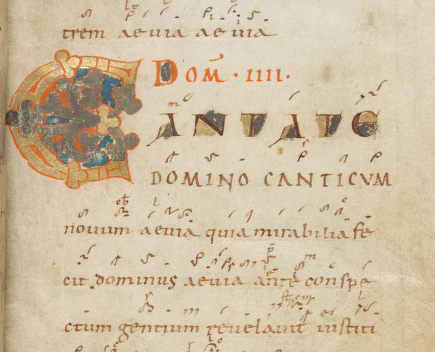 trem aeuia aeuia
DOM̄ · IIII ·
CANTATE
DOMINO CANTICVM
nouum aeuia quia mirabilia fe
cit dominus aeuia ante conspe
ctum gentium reuelauit iustiti